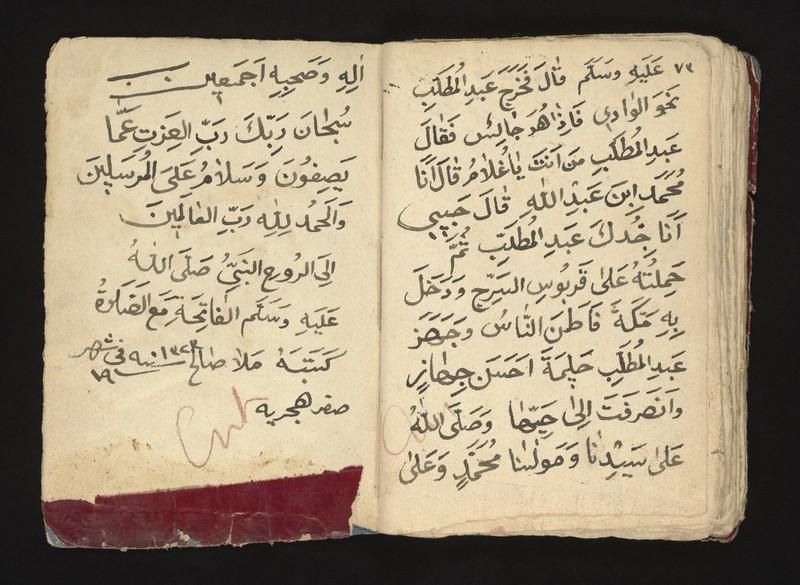 ٧٣
عَلَيْهِ وَسَلَّم قَالَ فَخَرَجَ عَبدِ المُطَّلِب
نَحوَ الوَادِى فَاِذَا هُدَ جَالِسٌ فَقَالَ
عَبدِ المُطَّلِبِ مَن اَنتَ يَاغُلَامُ قَالَ اَنَا
مُحَمَّد اِبنَ عَبْدِ اللهِ قَالَ حَبِيبى
اَنَا جَدُكَ عَبدِ المُطَّلِبِ ثُمَّ
حَمِلتُهُ عَلى قَربُوسِ السَرجِ وَدَخَلَ
بِهِ مَكَةَ فَاطَنَ النَّاسُ وَجَهَز
عَبدِ المُطَّلِب حَلِمَةَ اَحسَن جِهَازٍ
وَانصَرَفَت اِلىَ حَيِّهَا وَصَلَّى اللهُ
عَلىَ سَيِّدِنَا وَمَولَانَا مُحَمَّدٍ وَعَلىَ
اٰلِهِ وَصَحبِهِ اَجمَعِين
سُبحَانَ رَبِّكَ رَبِّ العِزتِ عَمَّا
يَصِفُونَ وَسَلَامُ عَلىَ المُرسَلِينَ
وَالحَمدُ لِلّٰهِ رَبِّ العَالَمِينَ
اِلىَ الرُوحِ النَبىُ صَلَّى اللهُ
عَلَيْهِ وَسَلَّم الفَاتِحَة مَعَ الصَلَاةُ
كَتَبَهُ مَلا صَالح ١٣٢٣ سنه فى شهر
١٩
صفر هجريه